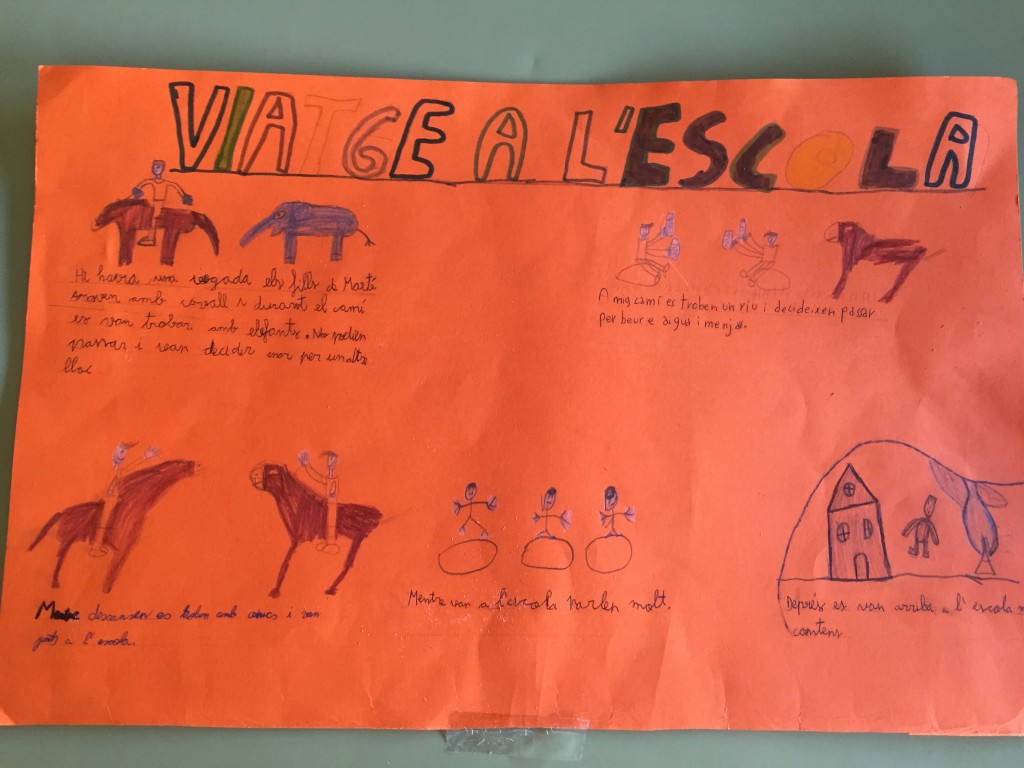 VIATGE A L'ESCOLA
Hi havia una vegada els fills de Martí
anaven amb cavall i durant el camí
es van trobar amb elefants. No podien
passar i van decidir anar per un altre
lloc
A mig camí es troben un riu i decideixen passar
per beure aigua i menjar.
descansen es troben amb amics i van
junts a l'escola.
Mentre van a l'escola parlen molt.
Després es van arribà a l'escola
contens